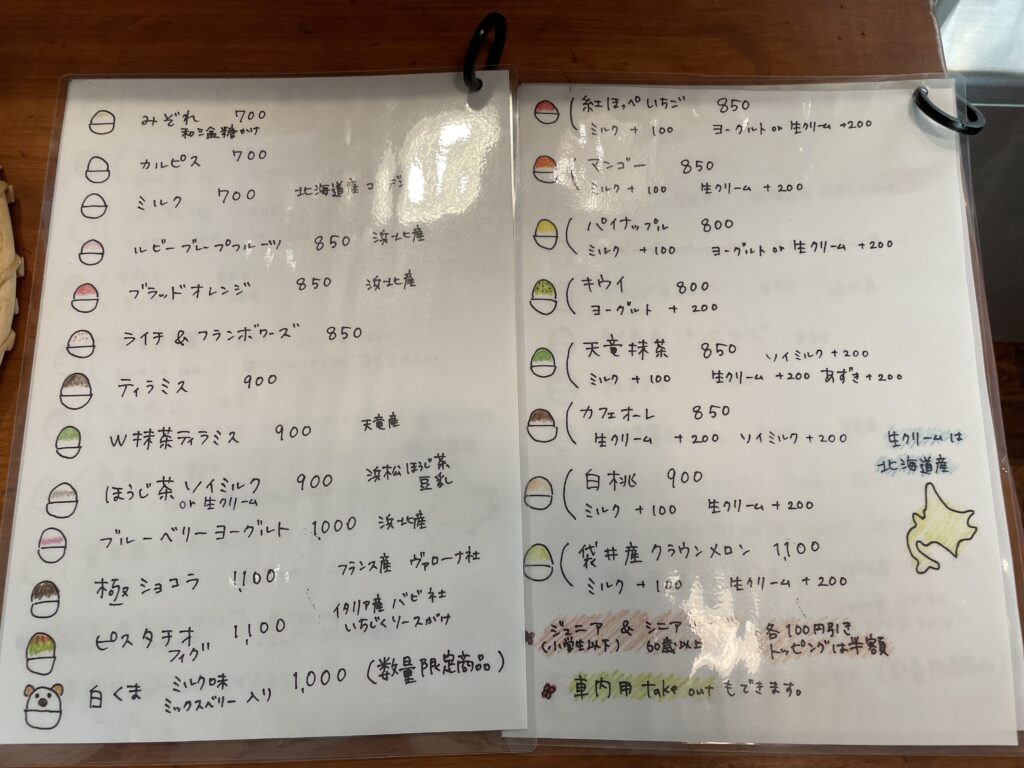 みぞれ 700
和三盆糖がけ
カルピス 700
ミルク 700 北海道産
ルビーグレープフルーツ 850 浜北産
ブラッドオレンジ 850 浜北産
ライチ & フランボワーズ 850
ティラミス 900
W抹茶ティラミス 900 天竜産
ほうじ茶 ソイミルク 900 浜松ほうじ茶
or 生クリーム 豆乳
ブルーベリーヨーグルト 1,000 浜北産
極 ショコラ 1,100 フランス産 ヴァローナ社
ピスタチオ 1,100 イタリア産 バビ社
フィグ いちじくソースがけ
白くま ミルク味 1,000 (数量限定商品)
ミックスベリー入り
紅ほっぺいちご 850
ミルク + 100 ヨーグルト or 生クリーム +200
マンゴー 850
ミルク + 100 生クリーム +200
パイナップル 800
ミルク + 100 ヨーグルト or 生クリーム +200
キウイ 800
ヨーグルト + 200
天竜抹茶 850 ソイミルク +200
ミルク + 100 生クリーム +200 あずき +200
カフェオーレ 850
生クリーム +200 ソイミルク +200
生クリームは
北海道産
白桃 900
ミルク + 100 生クリーム +200
袋井産 クラウンメロン 1,100
ミルク +100 生クリーム +200
ジュニア & シニア 各100円引き
(小学生以下) 60歳以上 トッピングは半額
車内用 take out もできます。